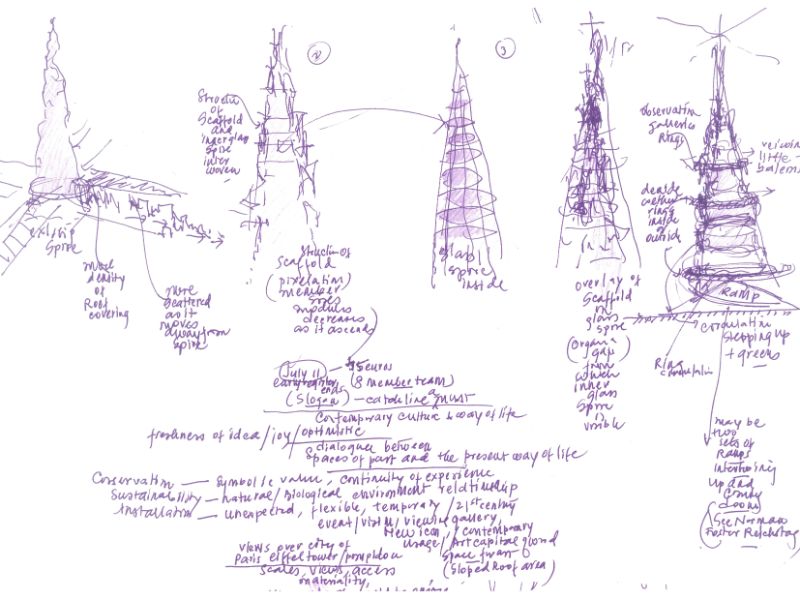 ②
③
Structure
of
Scaffold
and
inner glass
spire
inter
woven
existing
spire
more
density
of
Roof
covering
more
scattered
as it
moves
away from
spire
Structure of
Scaffold
(pixelation)
member
sizes
modules
decreases
as it ascends
glass
spire
inside
overlay of
Scaffold
on
glass
spire
(organic
gaps
from
which
inner
glass
spire
is
visible
observation
galleries
Rings
viewing
little
decide
whether
rings
inside
or
outside
Ramp
circulation
stepping up
+ greens
Ring
circulation
may be
two
sets of
Ramps
up and
down
(See Norman
Foster Reichstag)
(July 11) — 35 euros
early registration ends (8 member team)
(Slogan) — catchline a must
Contemporary culture & way of life
freshness of idea/joy/optimistic
dialogue between
spaces of past and the present way of life
Conservation — Symbolic value, continuity of experience
Sustainability — natural/Biological environment relationship
Installation — unexpected, flexible, temporary / 21st century
event/visitor/viewing gallery,
New icon / contemporary
usage / Art capital ground
space
(Sloped Roof area)
views over city of
Paris Eiffel tower/pompidou
Scales, views, access
materiality,